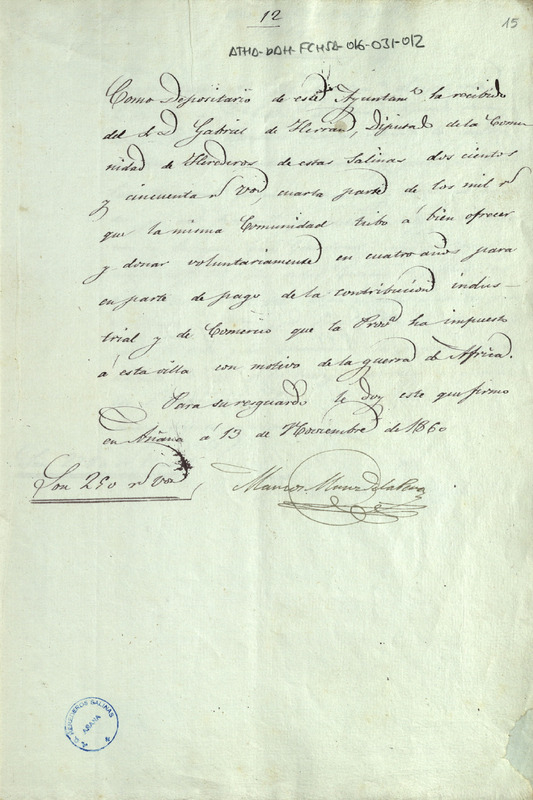 12
15
ATHA-DAH-FCHSA-016-031-012
Como Depositario de este Ayuntamto, ha recibido
del S. D. Gabriel de Herran, Diputado de la Comu
nidad de Herederos de estas Salinas dos cientos
y cincuenta rs von, cuarta parte de los mil rs
que la misma Comunidad tubo á bien ofrecer
y donar voluntariamente en cuatro años para
en parte de pago de la contribucion indus-
trial y de Comercio que la Prova ha impuesto
á esta villa con motivo de la guerra de Africa.
Para su resguardo le doy este que firmo
en Añana á 13 de Noviembre de 1860
Son 250 rs von
Marcos
HEREDEROS SALINAS
AÑANA